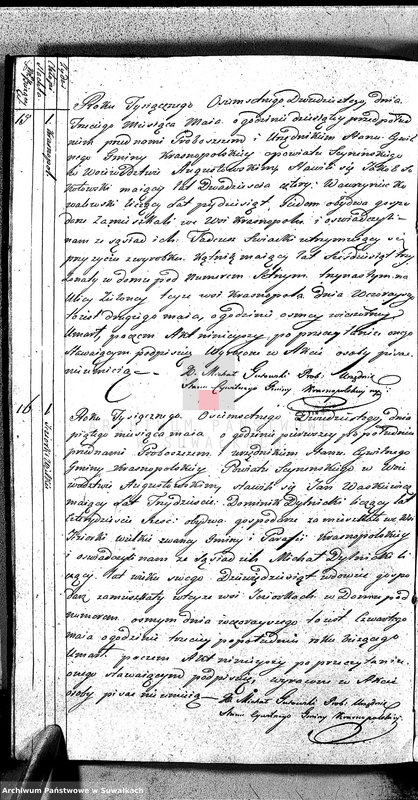 15
1
Krasnopol
Roku Tysiącznego Osimsetnego Dwudziestego, dnia
Trzeciego Miesiąca Maia o godzinie dziesiątey przed połud
niem przed nami Proboszczem i Urzędnikiem Stanu Cywil
nego Gminy Krasnopolskiey powiatu Seyneńskiego
w Woiewodztwie Augustowskim, stawili się
maiący lat Dwadzieścia cztery: Wawrzyniec Ko
walewski liczący lat pięćdziesiąt, Ludem obydwa gospo
darze zamieszkali we Wsi Krasnopolu i oświadczyli
nam iż sąsiad ich Tadeusz utrzymuiący się
przy życiu z wyrobku maiący lat Sześćdziesiąt
żonaty w domu pod numerem Setnym trzynastym na
Ulicy teyże wsi Krasnopola dnia Wczorayszego
to iest drugiego maia, o godzinie osmey wieczorney
Umarł, poczem Akt ninieyszy po przeczytaniu onego
Stawaiącym podpisaliśmy Wyrażone w Akcie osoby pisać
nie umieią
X. Michał Gusowski Prob. Urzędnik
Stanu Cywilnego Gminy Krasnopolskiey
16
1
Roku Tysiącznego Osimsetnego Dwudziestego dnia
piątego miesiąca maia, o godzinie pierwszey po południu
przed nami Proboszczem i urzędnikiem Stanu Cywilnego
Gminy Krasnopolskiey Powiatu Seynenskiego w Woie
wodztwie Augustowskim, stawili się Jan Waskiewicz
maiący lat Trzydzieści: Dominik Dylnicki liczący lat
Czterdzieście sześć: obydwa gospodarze zamieszkali we Wsi
Jeziorki wilki zwaney Gminy i Parafii Krasnopolskiey
i oświadczyli nam iż sąsiad ich Michał Dylnicki li
czący lat wieku swego Dziewięćdziesiąt wdowiec gospo
darz zamieszkały w teyże wsi Jeziorkach w Domu pod
numerem osmym dnia wczorayszego to iest Czwartego
maia o godzinie trzeciey po południu roku bieżącego
Umarł. poczem Akt ninieyszy po przeczytaniu
onego stawaiącym podpisaliśmy, wyrażone w Akcie
osoby pisać nie umieią
X. Michał Gusowski Prob. Urzędnik
Stanu Cywilnego Gminy Krasnopolskiey
Archiwum Państwowe w Suwałkach